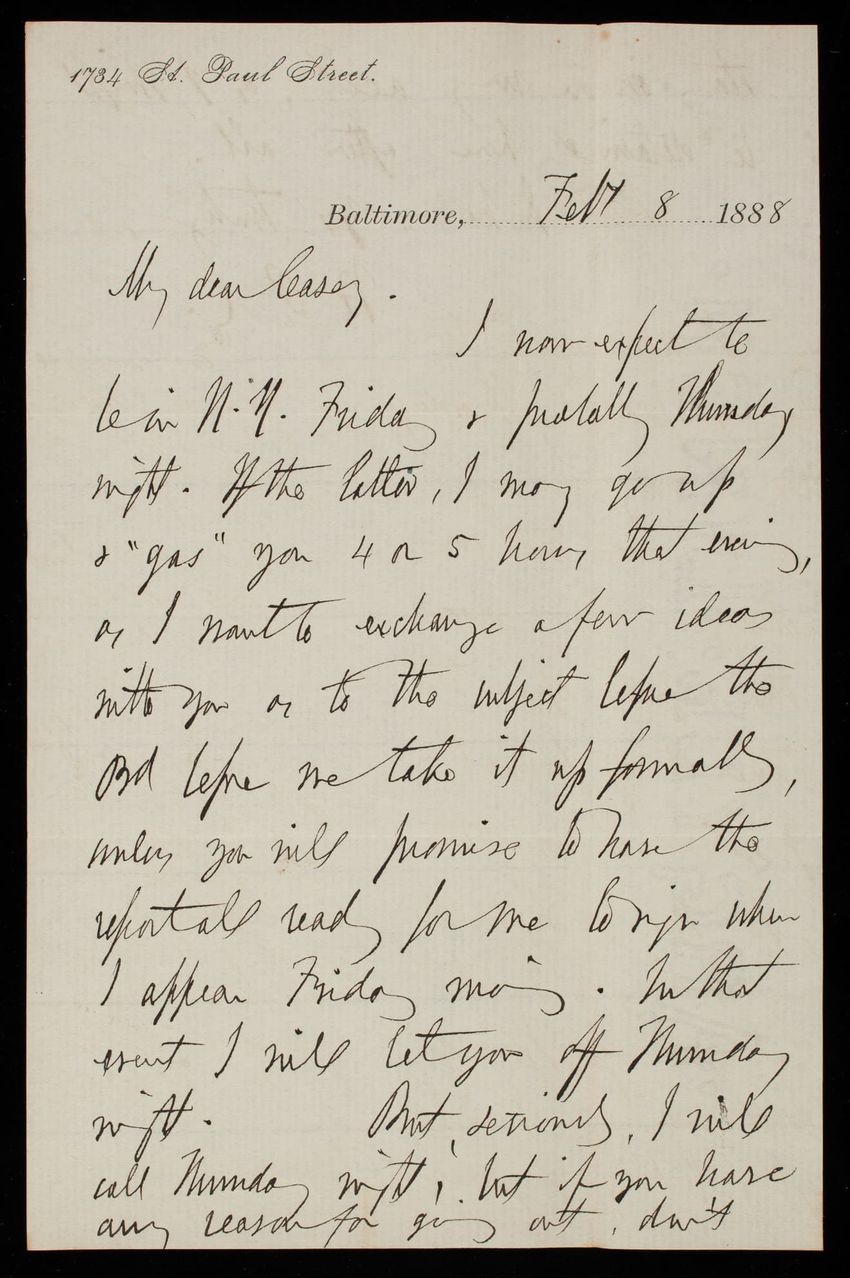 1734 St. Paul Street.
Baltimore, Feby 8 1888
My dear Casey.
I now expect to
be in N.Y. Friday & probably Thursday
night. If the latter, I may go up
& "gas" you 4 or 5 hours that evening,
as I want to exchange a few ideas
with you as to the subject before the
Bd before we take it up formally,
unless you will promise to have the
report all ready for me to sign when
I appear Friday morning. In that
event I will let you off Thursday
night. But, seriously, I will
call Thursday night; but if you have
any reason for going out, don't